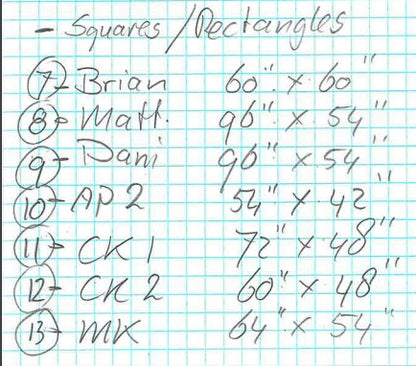 - Squares / Rectangles
7 - Brian 60" x 60"
8 - Matt. 96" x 54"
9 - Dani 96" x 54"
10 - AP 2 54" x 42"
11 - CK 1 72" x 48"
12 - CK 2 60" x 48"
13 - MK 64" x 54"